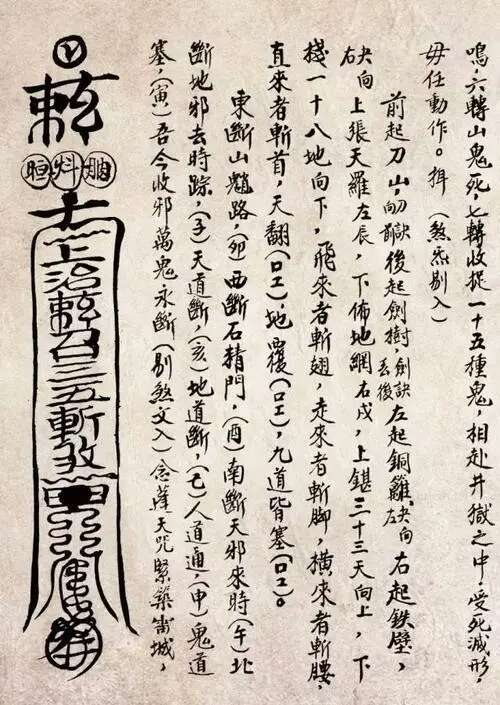 鳴六轉山鬼死,七轉收捉一十五種鬼,相赴井獄之中,受死滅形,
毋任動作。揖(煞炁剔入)
前起刀山,後起劍樹,劍訣丟後左起銅籬,訣向左右起鉄壁,
訣向右上張天羅左辰,下佈地網右戌,上鍖三十三天向上,下
棧一十八地向下,飛來者斬翅,走來者斬脚,橫來者斬腰,
直來者斬首,天翻(口工),地覆(口工),九道皆塞(口工)。
東斷山魈路,(卯)西斷石精門,(酉)南斷天邪來時(午)北
斷地邪去時踪,(子)天道斷,(亥)地道斷,(巳)人道通,(申)鬼道
塞,(寅)吾今收邪萬鬼永斷(剔煞文入)念蓬天咒緊築甯城,
上治敕召三五斬煞